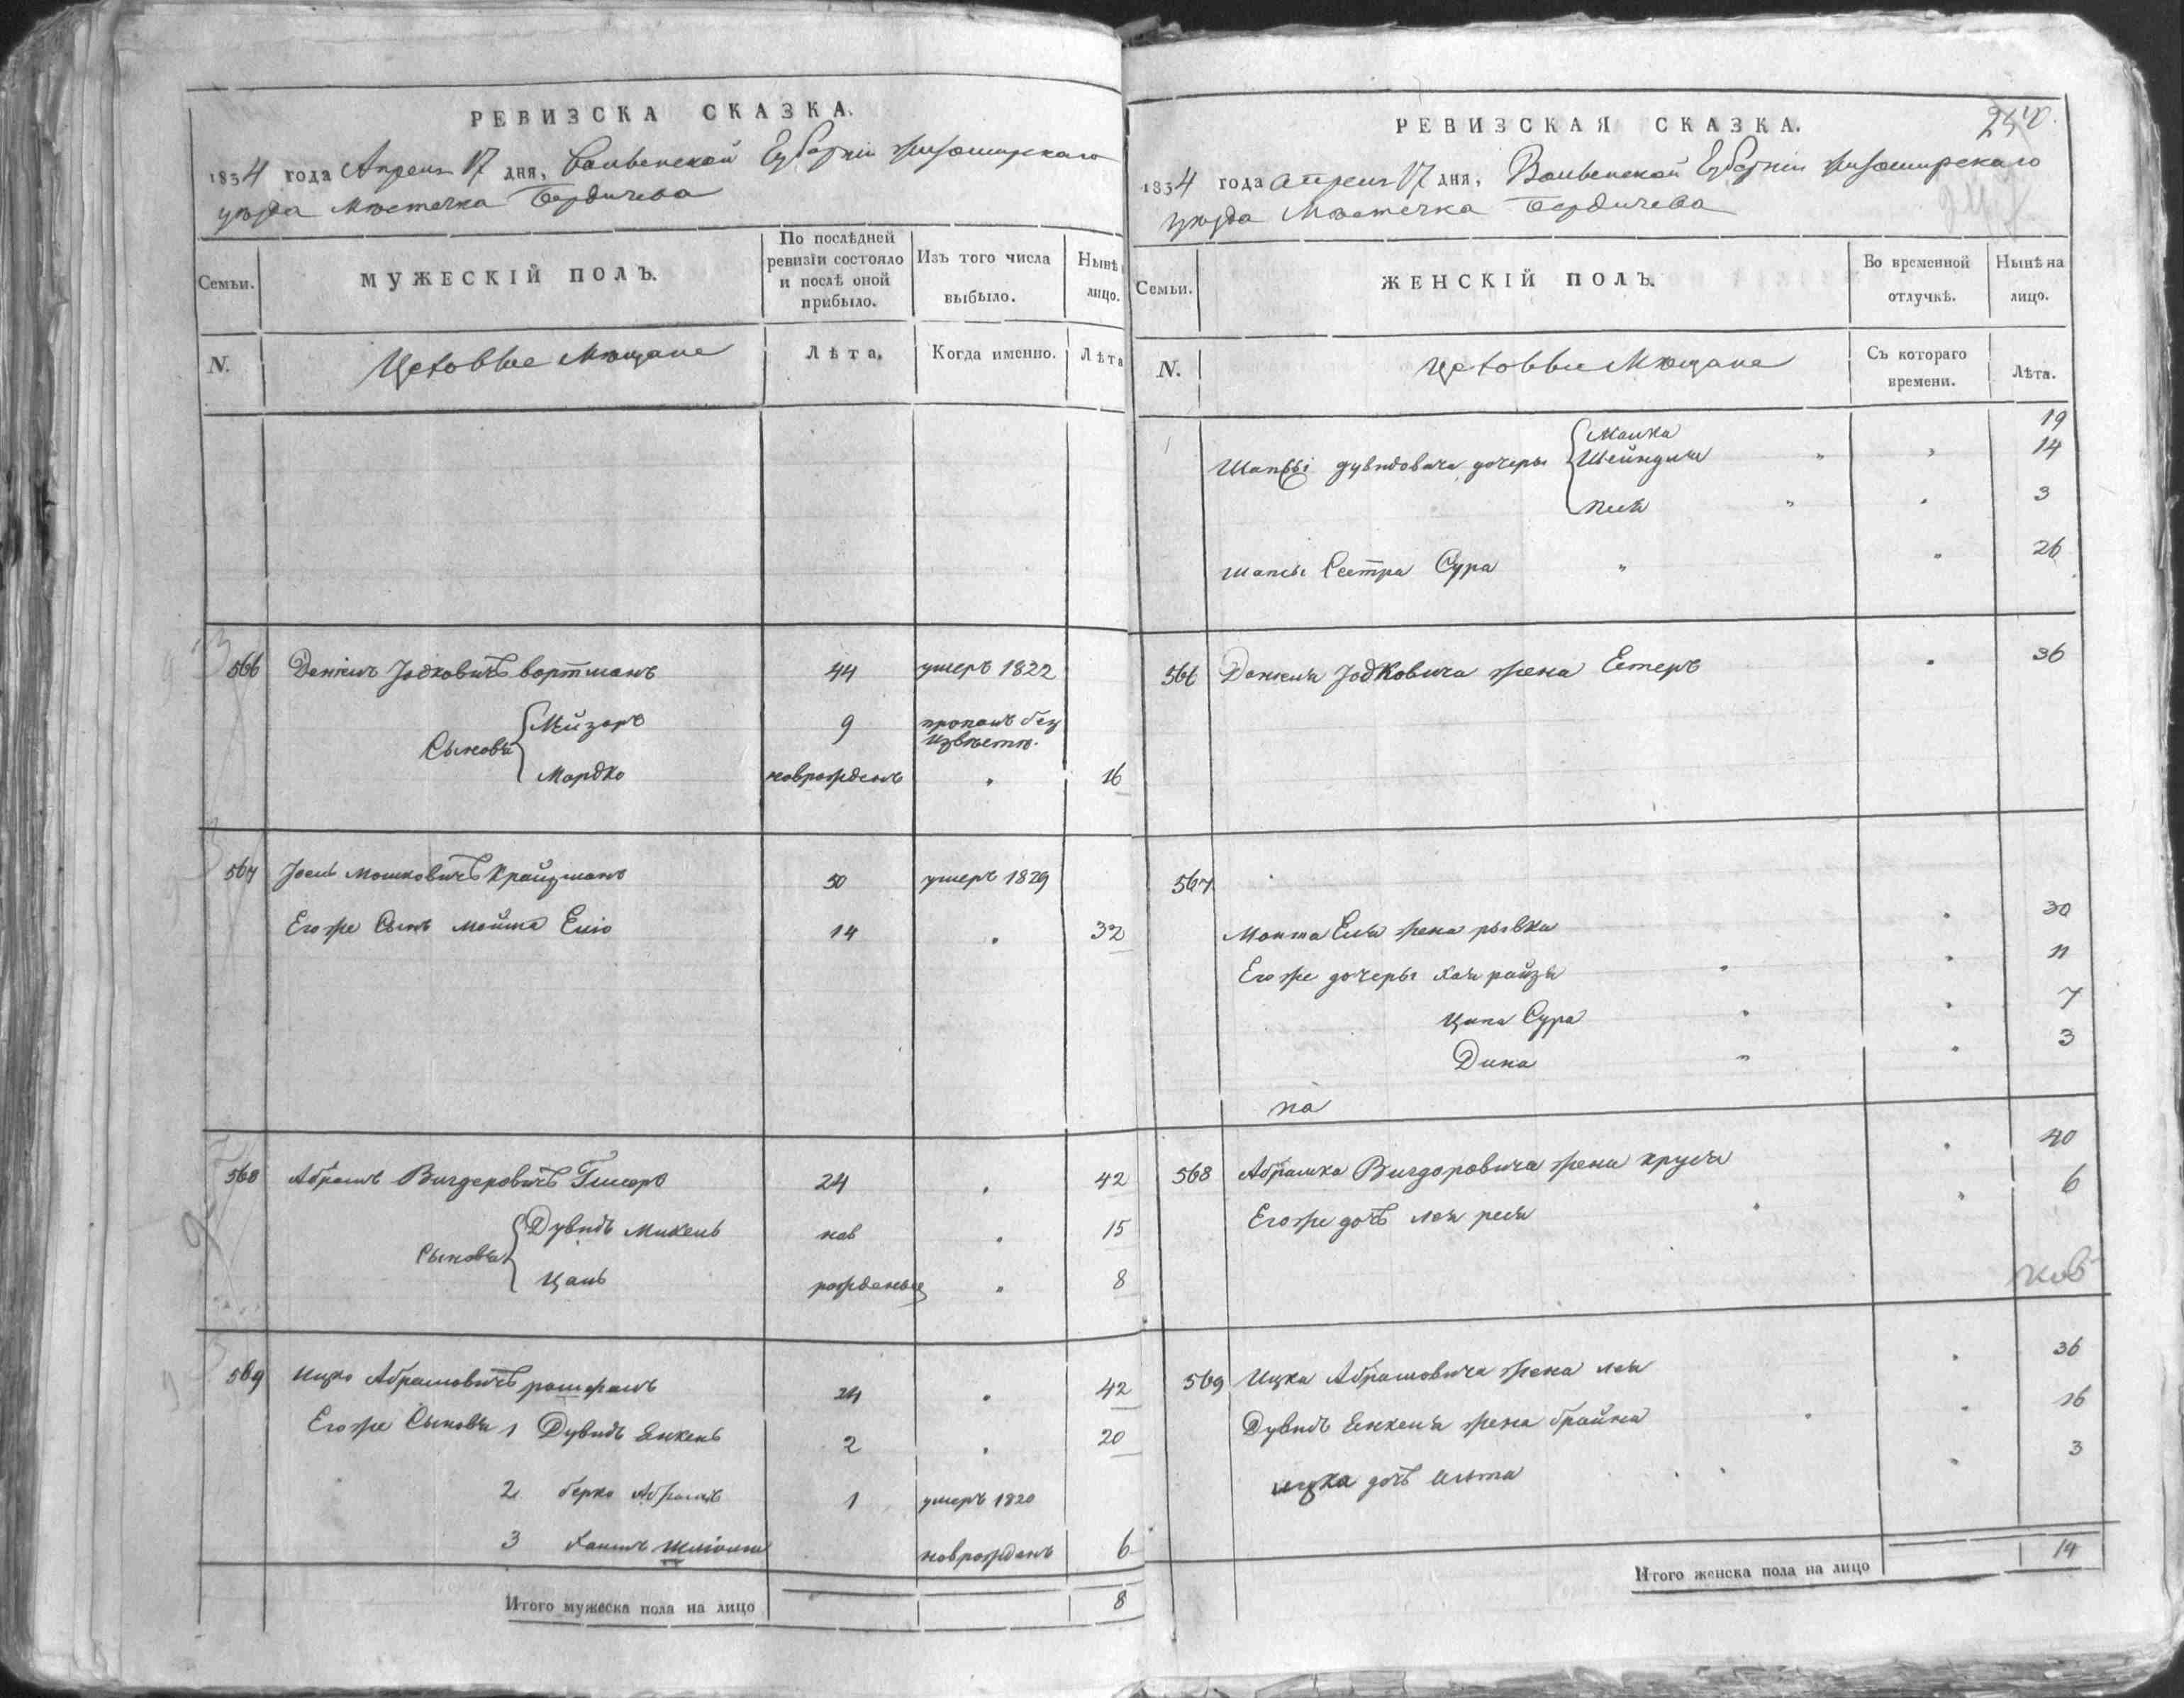 РЕВИЗСКА СКАЗКА.
1834 года Апреля 17 дня, Волынской Губернии Житомирскаго
уезда Местечка Бердичева
Семьи.
МУЖЕСКІЙ ПОЛЪ.
По послѣдней ревизіи состояло и послѣ оной прибыло.
Изъ того числа выбыло.
Нынѣ лицо.
N.
Цеховые Мещане
Лѣта.
Когда именно.
Лѣта
566 Даніилъ Іодковичъ вортманъ 44 умеръ 1822
Сыновья
Мейзоръ 9 пропалъ без известн.
Мордко новрожденъ " 16
567 Іосъ Мошковичъ Крайзманъ 50 умеръ 1829
Егоже Сынъ Мойша Еліо 14 " 32
568 Абрамъ Вигдоровичъ 24 " 42
Сыновья
Дувидъ Михель нов " 15
Цаль рожденые " 8
569 Ицко Абрамовичъ ройфманъ 24 " 42
Егоже Сыновья 1 Дувидъ Янкель 2 " 20
2 берко Абрамъ 1 умеръ 1820
3 Хаимъ новрожденъ 6
Итого мужеска пола на лицо 8
РЕВИЗСКАЯ СКАЗКА.
240.
1834 года апреля 17 дня, Волынской Губернии Житомирскаго
уезда Местечка Бердичева
Семьи.
ЖЕНСКІЙ ПОЛЪ.
Во временной отлучкѣ.
Нынѣ на лицо.
N.
Цеховые Мещане
Съ котораго времени.
Лѣта.
Малка 19
дувидовича дочеры Шейндля " " 14
песя " " 3
Сестра Сура " " 26
566 Даніила Іодковича жена Естеръ " 36
567
Мошка Еля жена рывка " 30
Егоже дочеры хая райзя " " 11
Ципа Сура " " 7
Дина " " 3
на
568 Абрамка Вигдоровича жена круся " 40
Егоже дочь лея рейзя " " 6
569 Ицка Абрамовича жена лея " 36
Дувидъ Янкеля жена брайна " " 16
ицка дочь 3
Итого женска пола на лицо 14